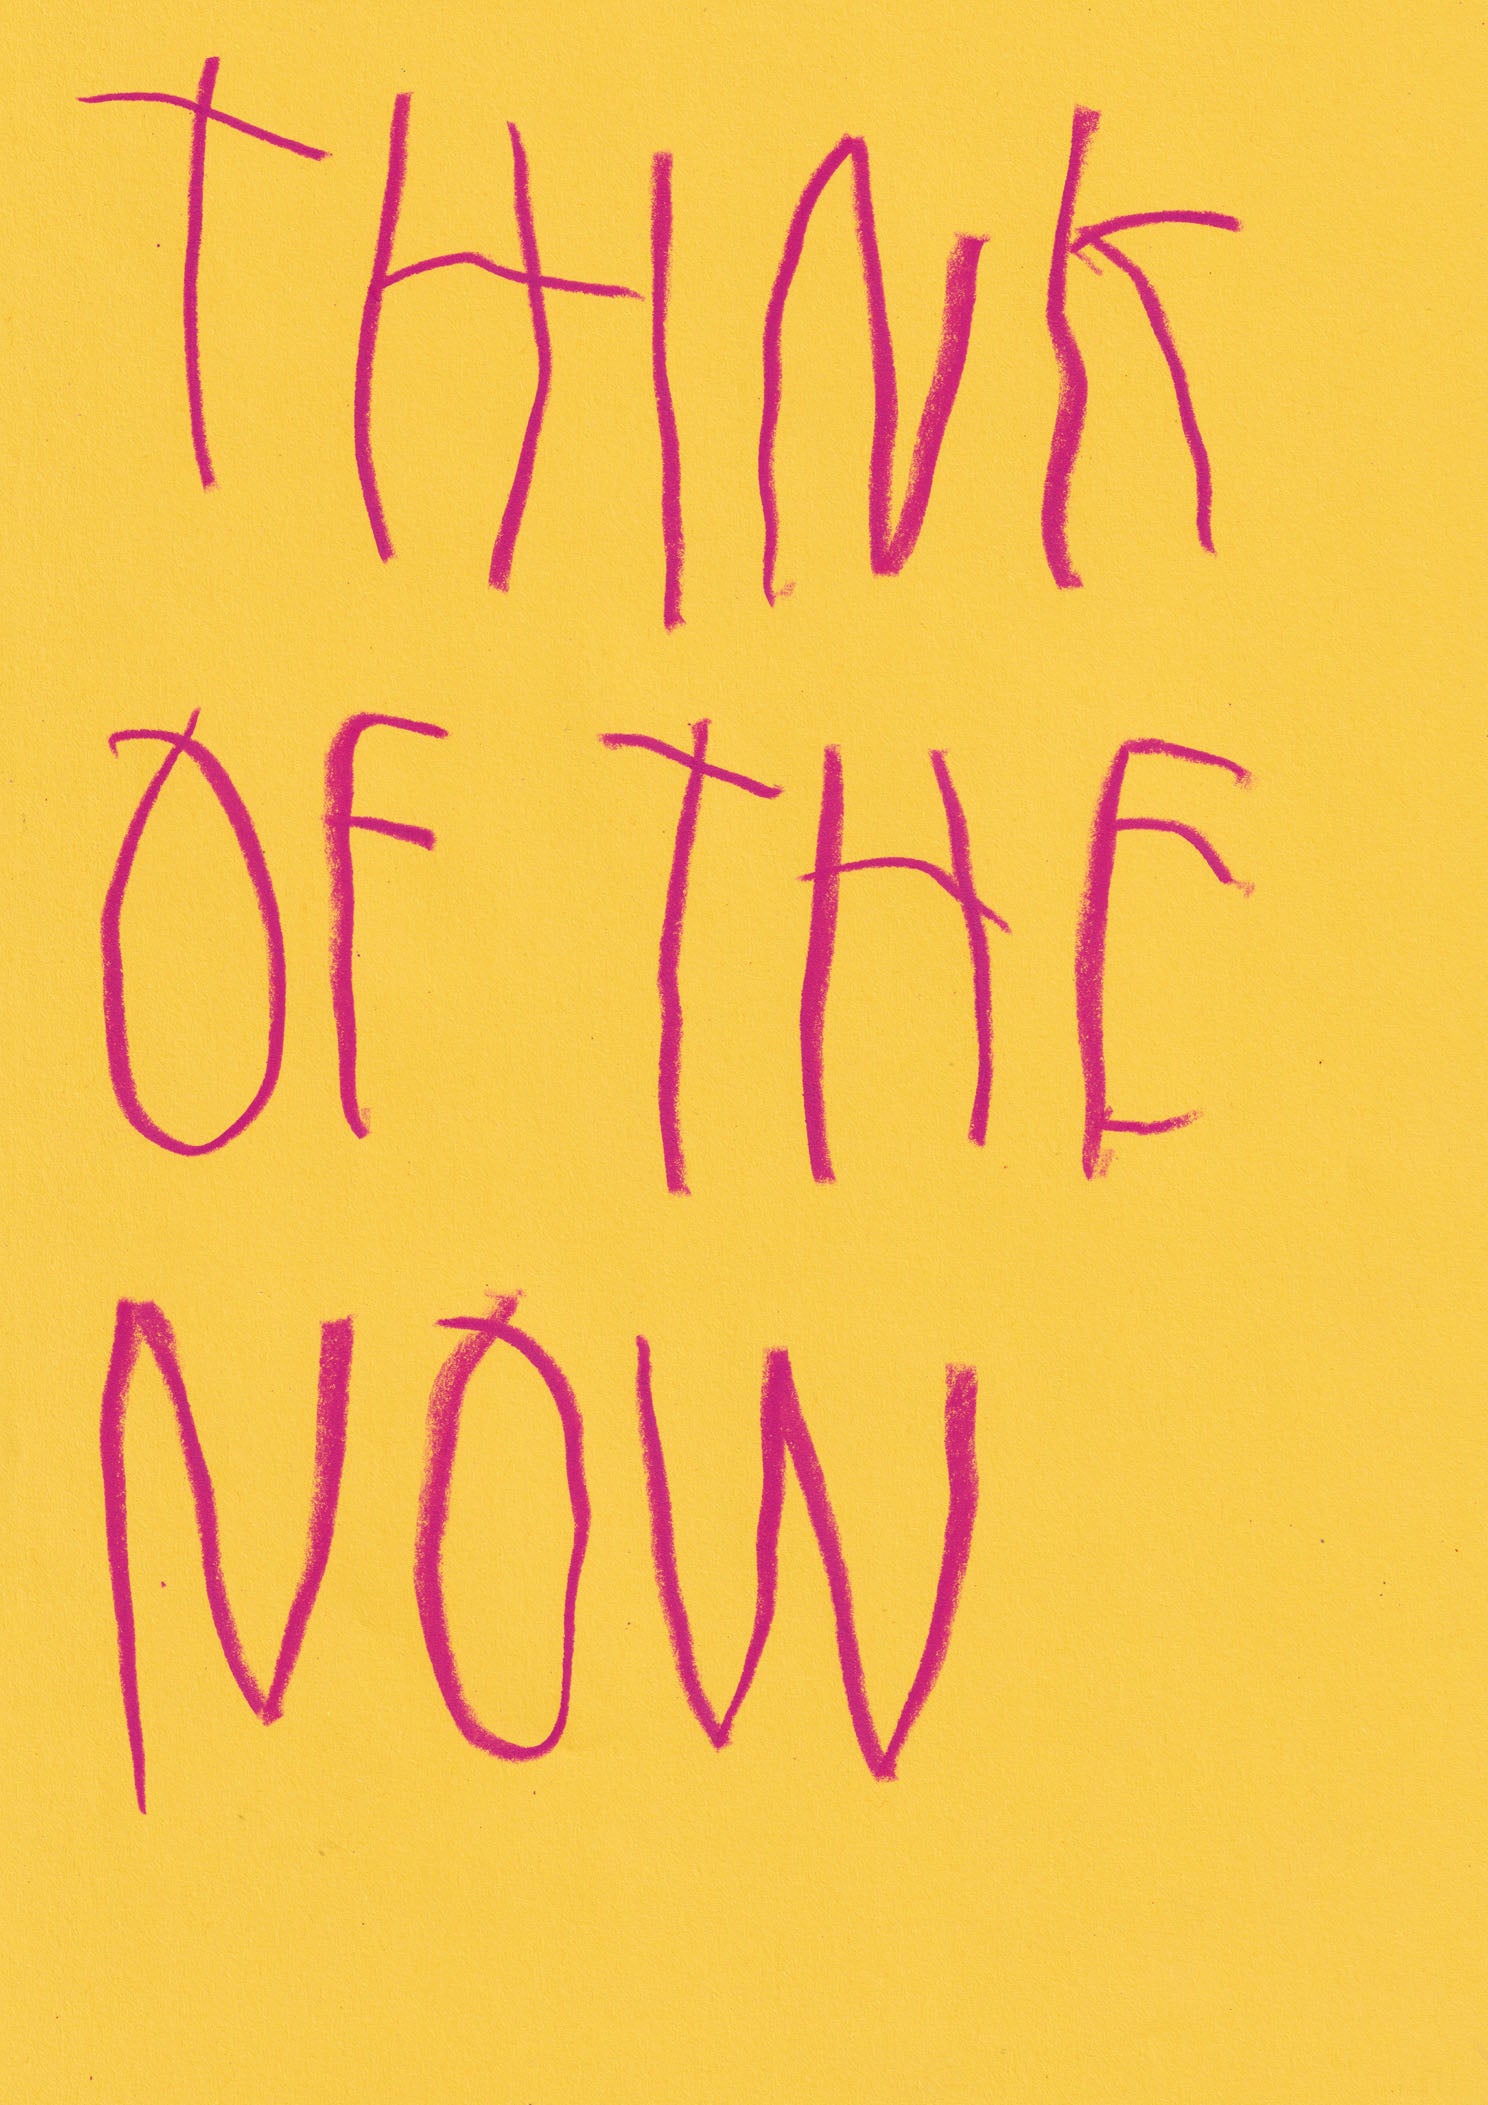 THINK
OF THE
NOW